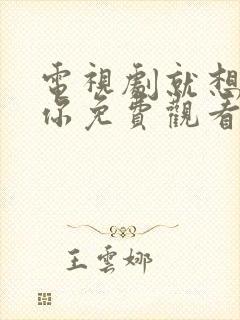 電視劇就想
你免費觀看
王雲娜